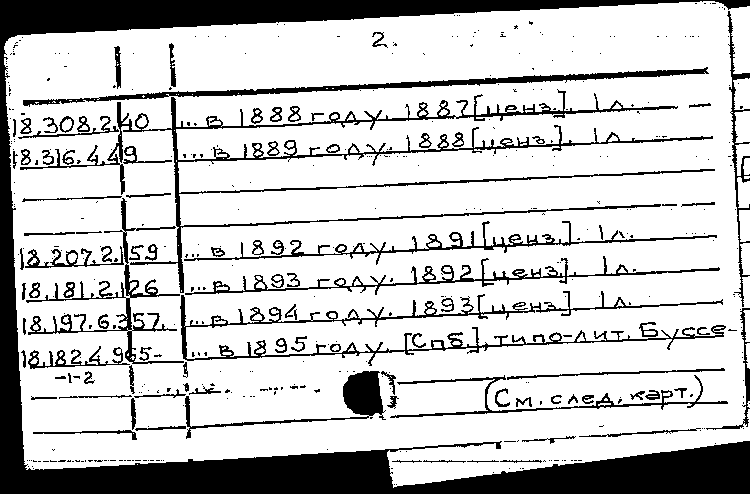 2.
18.308.2.40 ... в 1888 году. 1887 [ценз.]. 1 л.
18.316.4.49 ... в 1889 году. 1888 [ценз.]. 1 л.
18.207.2.159 ... в 1892 году. 1891 [ценз.]. 1 л.
18.181.2.126 ... в 1893 году. 1892 [ценз.]. 1 л.
18.197.6.357. ... в 1894 году. 1893 [ценз.]. 1 л.
18.182.4.965- ... в 1895 году. [Спб.], типо-лит. Буссе-
-1-2
(См. след. карт.)